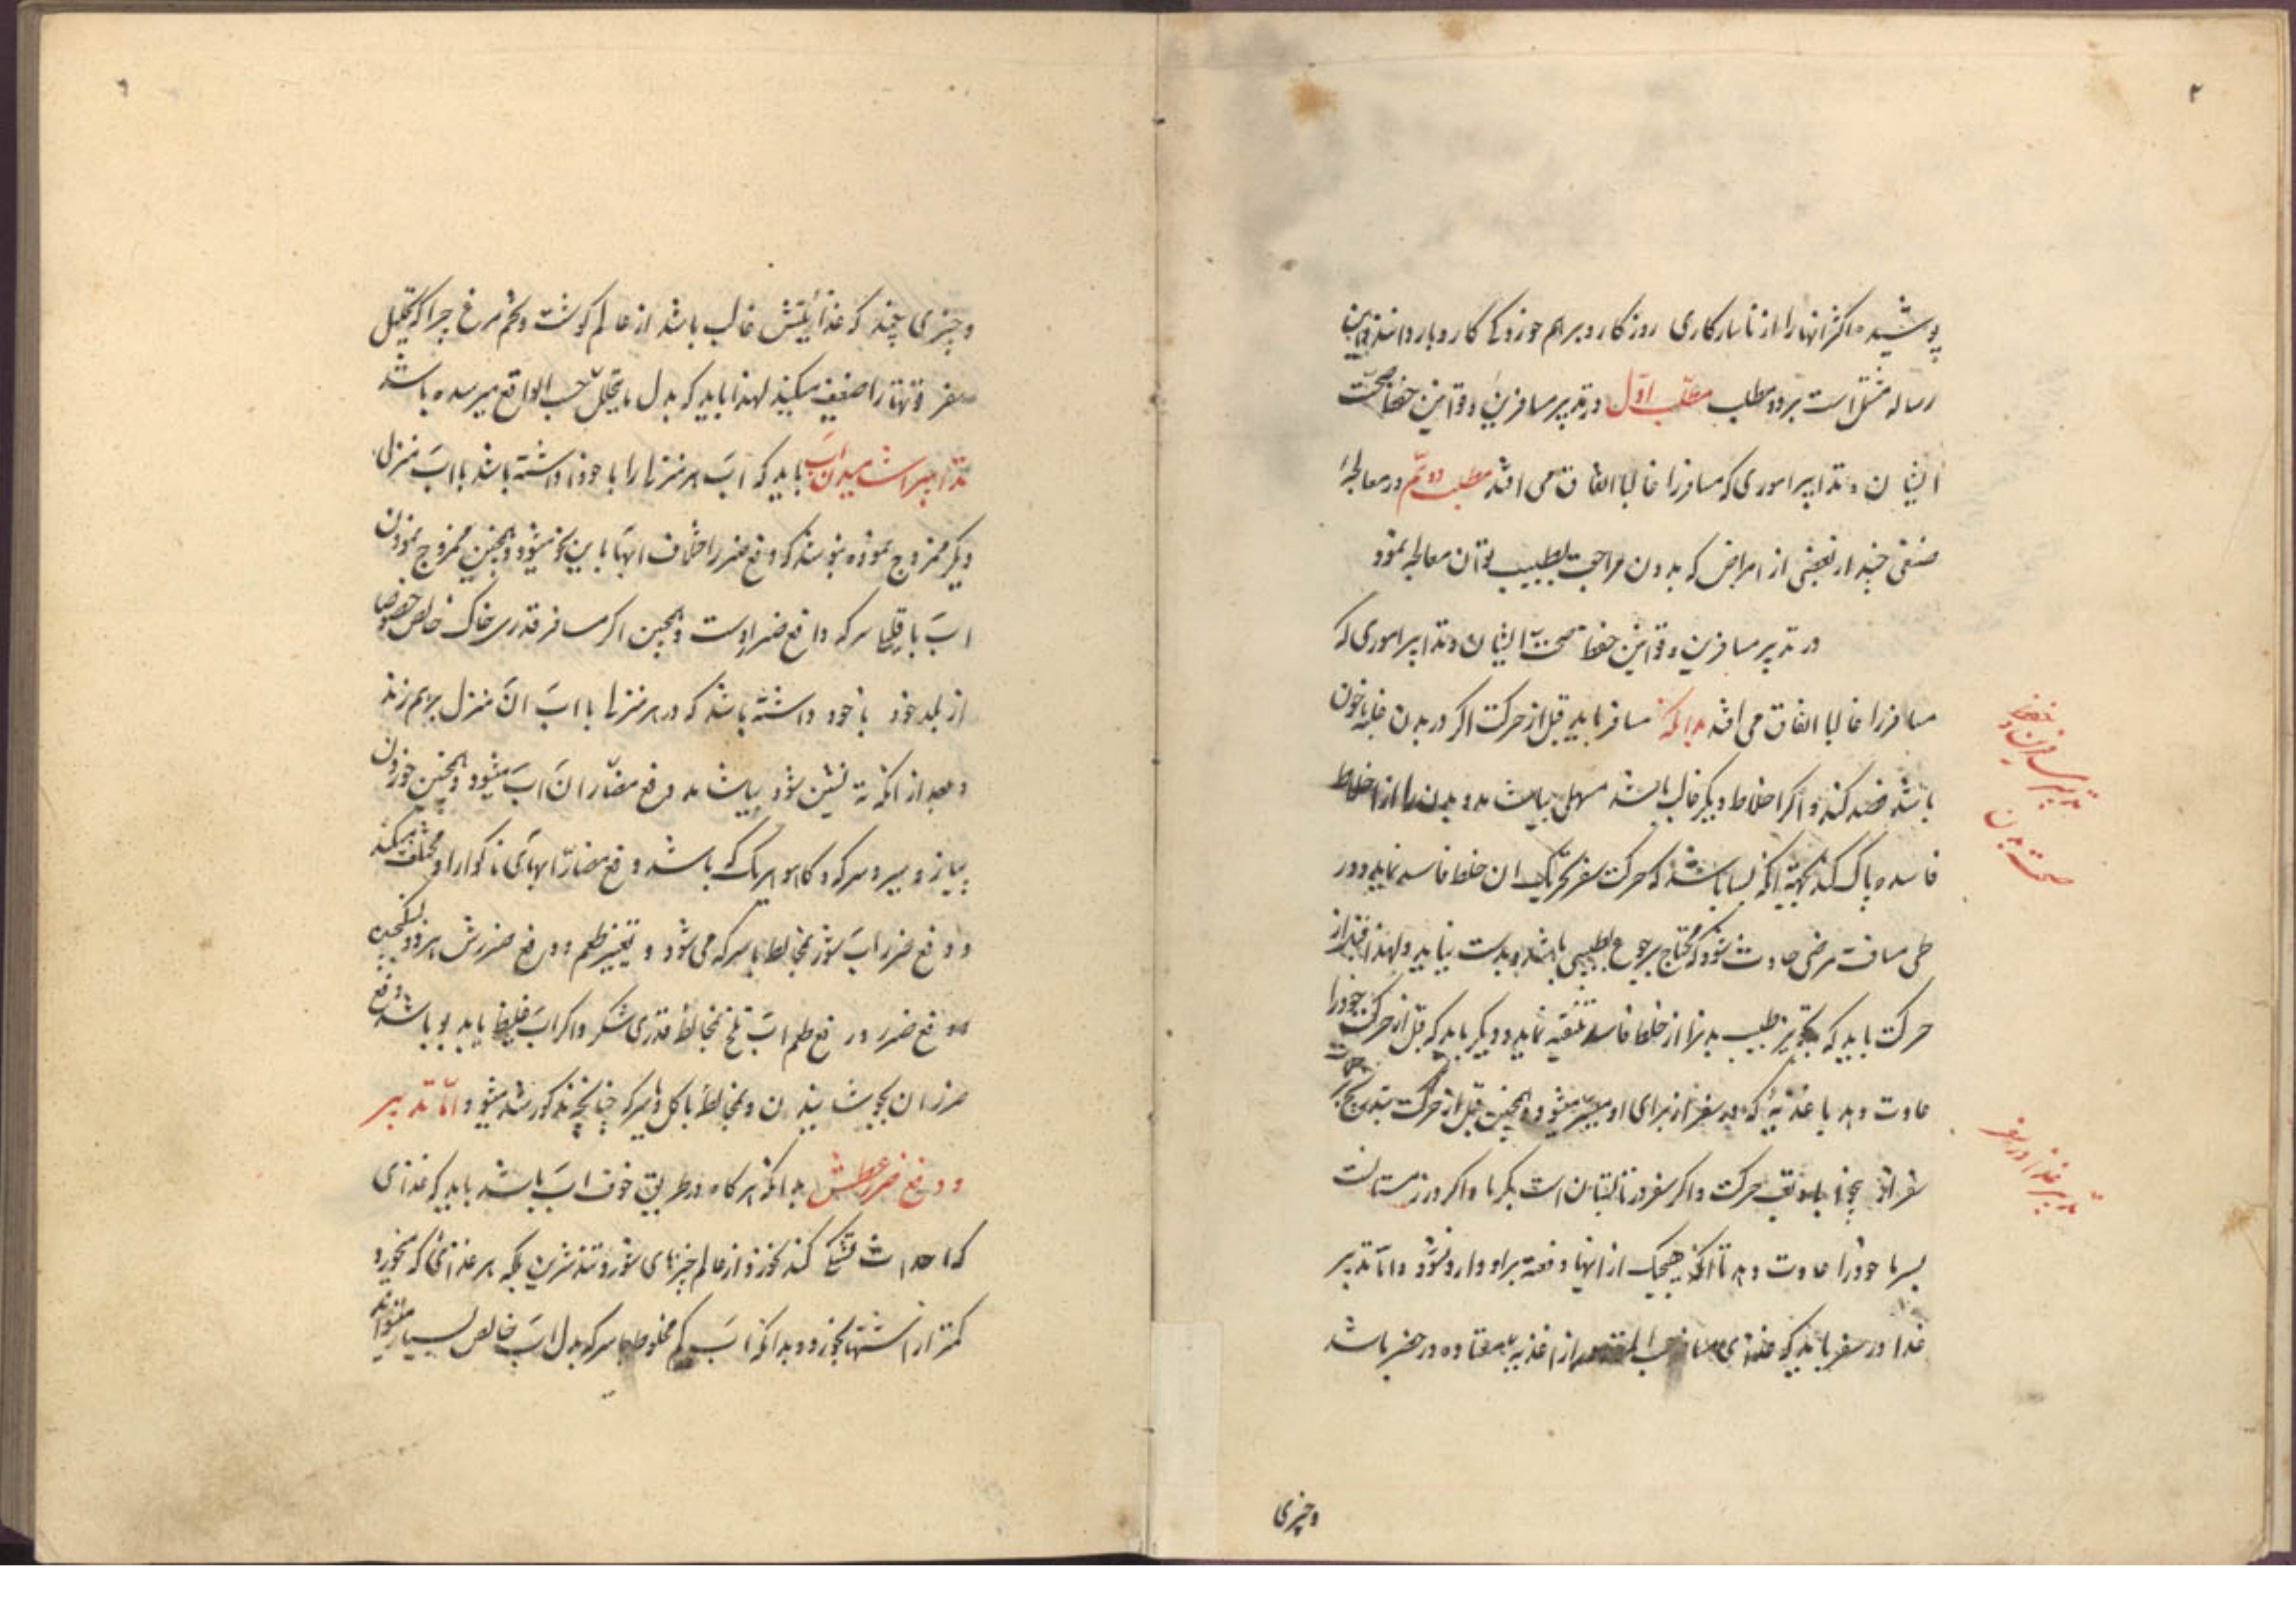 ۲
پوشیده اکثر انها را از ناسازکاری روزکار و برهم خوردکی کار و بار دانند و این
رساله مشتمل است بر دو مطلب مطلب اول در تدبیر مسافرین و قوانین حفظ صحت
ایشان و تدابیر اموری که مسافر را غالبا اتفاق می افتد مطلب دویم در معالجهٔ
صنفی چند از بعضی از امراض که بدون مراجعت بطبیب توان معالجه نمود
در تدبیر مسافرین و قوانین حفظ صحت ایشان و تدابیر اموری که
مسافر را غالبا اتفاق می افتد بدانکه مسافر باید قبل از حرکت اکر در بدن غلبه خون
باشد فصد کند و اکر اخلاط دیکر غالب باشد مسهل بیاشامد و بدن را از اخلاط
فاسده پاک کند بجهة انکه بسا باشد که حرکت سفر تحریک ان خلط فاسد نماید و در
طی مسافت مرضی حادث شود که محتاج برجوع بطبیبی باشد و بدست نیاید و لهذا قبل از
حرکت باید که بتجویز طبیب بدنرا از خلط فاسد تنقیه نماید و دیکر باید که قبل از حرکت خود را
عادت دهد باغذیهٔ که در سفر از برای او میسر میشود و همچنین قبل از حرکت بتدریج بر حرکت
سفر حرکت و اکر سفر در تابستان است بکرما و اکر در زمستانست
بسرما خود را عادت دهد تا انکه هیچیک از اینها دفعة بر او وارد نشود و اما تدبیر
غذا در سفر باید که غذای مسافر حسب المقدور از اغذیه معتاده در حضر باشد
تدبیر مسافرین و حفظ
صحت بدن
تدبیر غذا در سفر
و چیزی
و چیزی چند که غذائیتش غالب باشد از عالم کوشت و تخم مرغ چرا که تحلیل
سفر قوتها را ضعیف میکند لهذا باید که بدل ما یتحلل حسب الواقع میرسیده باشد
تدابیر اشامیدن اب باید که اب هر منزلی را با خود داشته باشد با اب منزل
دیکر ممزوج نموده بنوشند که دفع ضرر اختلاف ابها باین نحو میشود و همچنین ممزوج نمودن
اب با سرکه دافع ضرر اوست و همچنین اکر مسافر قدری خاک خالص خصوصا
از بلد خود با خود داشته باشد که در هر منزلی با اب ان منزل برهم زند
و بعد از انکه ته نشین شود بیاشامد دفع مضار ان اب میشود و همچنین خوردن
پیاز و سیر و سرکه و کاهو هر یک که باشد دفع مضار ابهای ناکوارا و مختلف میکند
و دفع ضرر اب شور بمخالط با سرکه می شود و تغییر طعم و دفع ضررش هر دو بسکنجبین
و دفع ضرر و رفع طعم اب تلخ بمخالط قدری شکر و اکر اب غلیظ یا بد بو باشد دفع
ضرر ان بجوشانیدن و بمخالط با کل و سرکه چنانچه مذکور شد میشود و اما تدبیر
و دفع ضرر عطش بدانکه هر کاه در طریق خوف اب باشد باید که غذای
که احداث تشنکی کند نخورد از عالم چیزهای شور و تند شیرین بلکه هر غذائی که میخورد
کمتر از اشتها بخورد و بدانکه اب کم مخلوط با سرکه بدل اب خالص بسیار میتواند